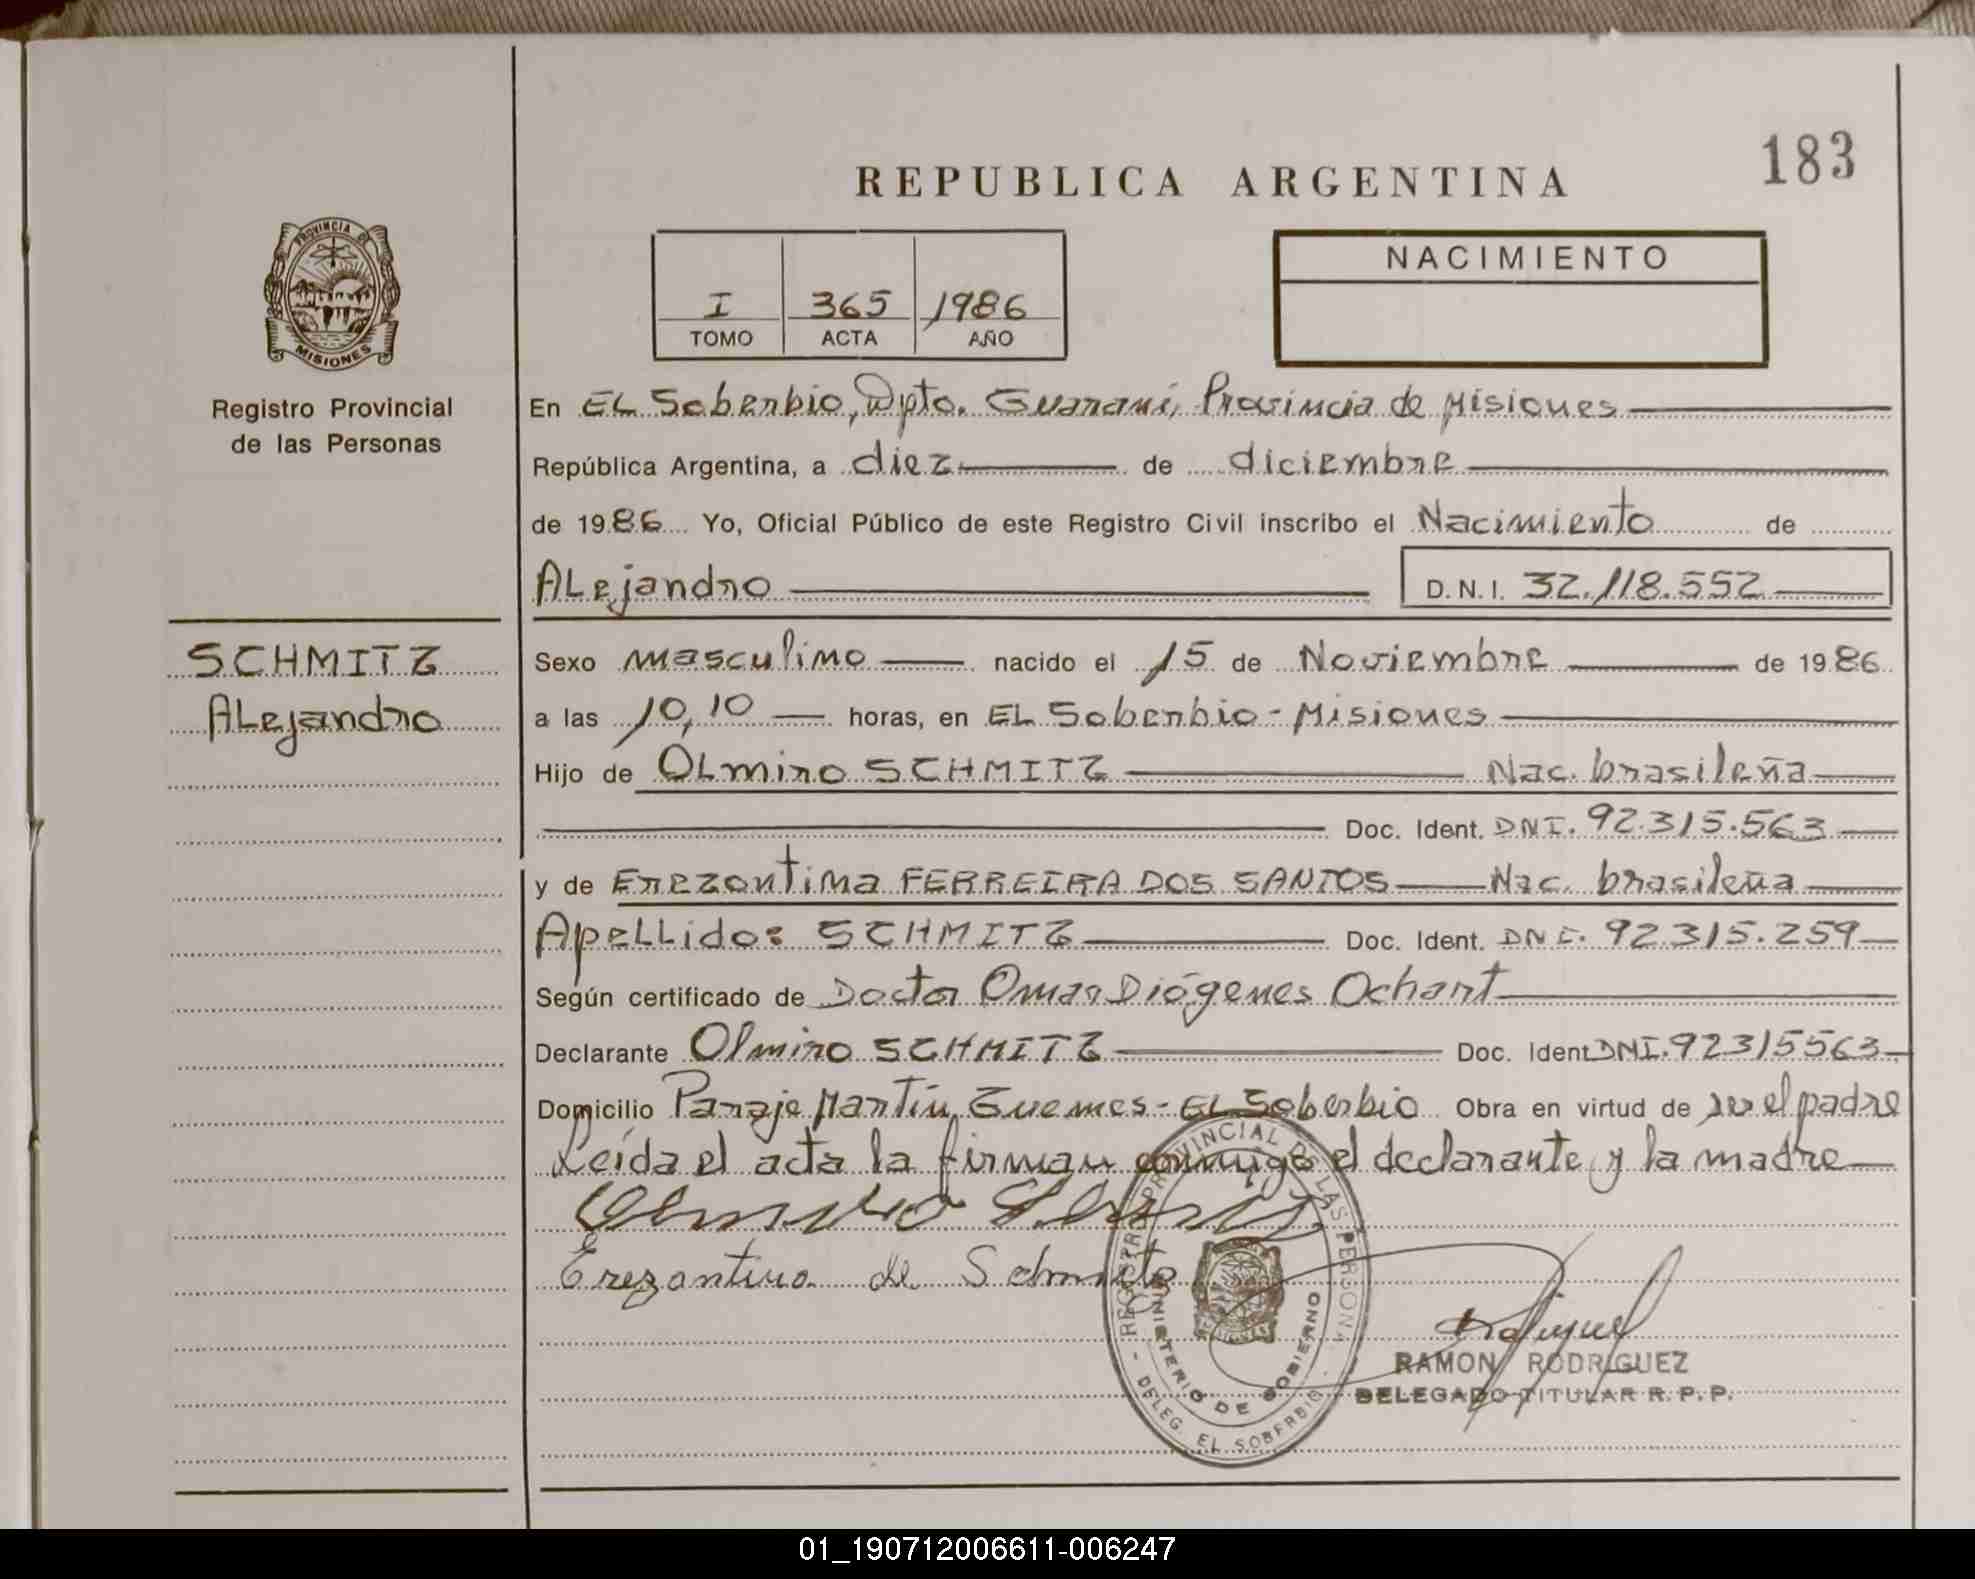 183
REPUBLICA ARGENTINA
PROVINCIA DE
MISIONES
Registro Provincial
de las Personas
I 365 1986
TOMO ACTA AÑO
NACIMIENTO
En EL Soberbio, Dpto. Guaraní, Provincia de Misiones
República Argentina, a diez de diciembre
de 1986 Yo, Oficial Público de este Registro Civil inscribo el Nacimiento de
ALejandro D.N.I. 32.118.552
SCHMITZ
ALejandro
Sexo masculino nacido el 15 de Noviembre de 1986
a las 10,10 horas, en EL Soberbio - Misiones
Hijo de OLmiro SCHMITZ Nac. brasileña
Doc. Ident. DNI. 92.315.563
y de Erezontina FERREIRA DOS SANTOS Nac. brasileña
ApeLLido: SCHMITZ Doc. Ident. DNI. 92.315.259
Según certificado de Doctor Omar Diógenes Ochart
Declarante Olmiro SCHMITZ Doc. Ident DNI. 92315563
Domicilio Paraje Martín Guemes - EL Soberbio Obra en virtud de ser el padre
Leída el acta la firman conmigo el declarante y la madre
Erezantina de Schmitz
REGISTRO PROVINCIAL DE LAS PERSONAS - DELEG. EL SOBERBIO -
MINISTERIO DE GOBIERNO
MISIONES
RAMON RODRIGUEZ
DELEGADO TITULAR R.P.P.
01_190712006611-006247